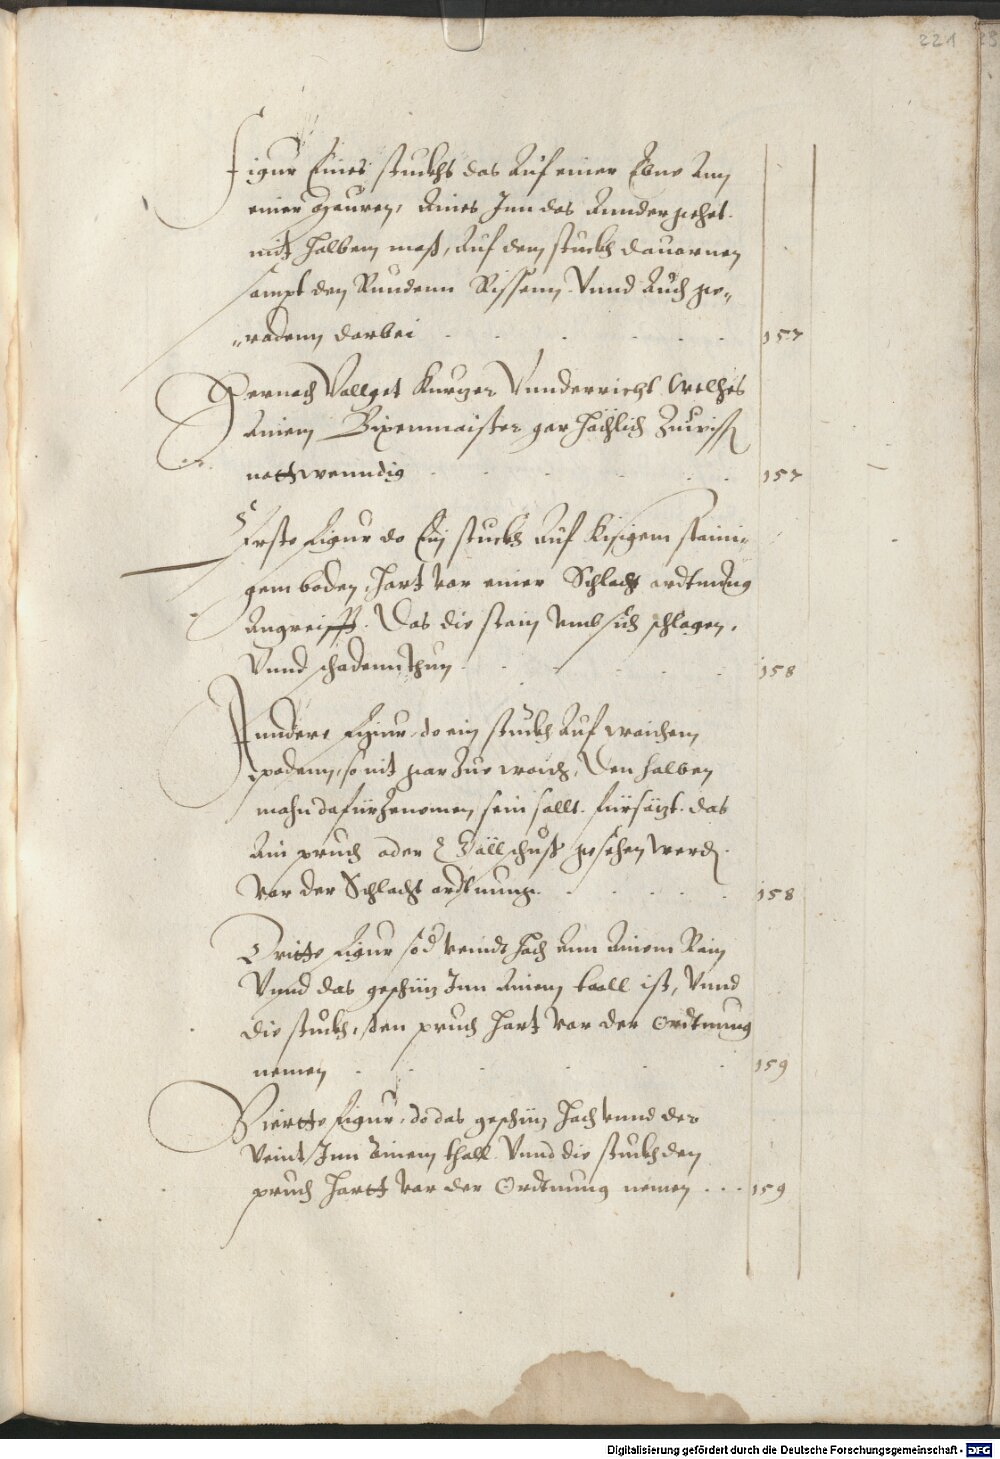 221
Figur Eines stuckhs das Auf einer Ebne Ann
einer Mauren, Aines Inn das Annder gehet
mit halbem mass, Auf dem stuckh dauornen
sampt den Rundenn Rissenn Vnnd Auch ge„
„radenn darbei . . . . . . 157
Hernach Vollget kurzer Vnnderricht Welches
Ainem Bixenmaister gar höchlich Zuwiss
nottwenndig . . . . 157
Erste Figur do Ein stuckh Auf kisigem staini„
gem boden, hart vor einer Schlacht ordtnung
Angreifft. Das die stain vmb sich schlagen,
Vnnd schadenn thun . . . . 158
Anndere Figur, do ein stuckh Auf waichem
podenn, so nit gar Zue waich, Den halben
mahn dafür Zenomen sein sollt. fürsäzt. das
Ain pruch oder Göllschuß gesehen werd.
Vor der Schlacht ordtnung . . . . 158
Dritte Figur so d veindt hoch Ann Ainem Rain
Vnnd das geschüz Inn Ainem taall ist, Vnnd
die stuckh, den pruch hart Vor der Ordtnung
nemen . . . . . 159
Viertte Figur, do das geschüz hoch vnnd der
Veint Inn Ainem thall Vnnd die stuckh den
pruch hartt Vor der Ordtnung nemen . . . 159
Digitalisierung gefördert durch die Deutsche Forschungsgemeinschaft - DFG